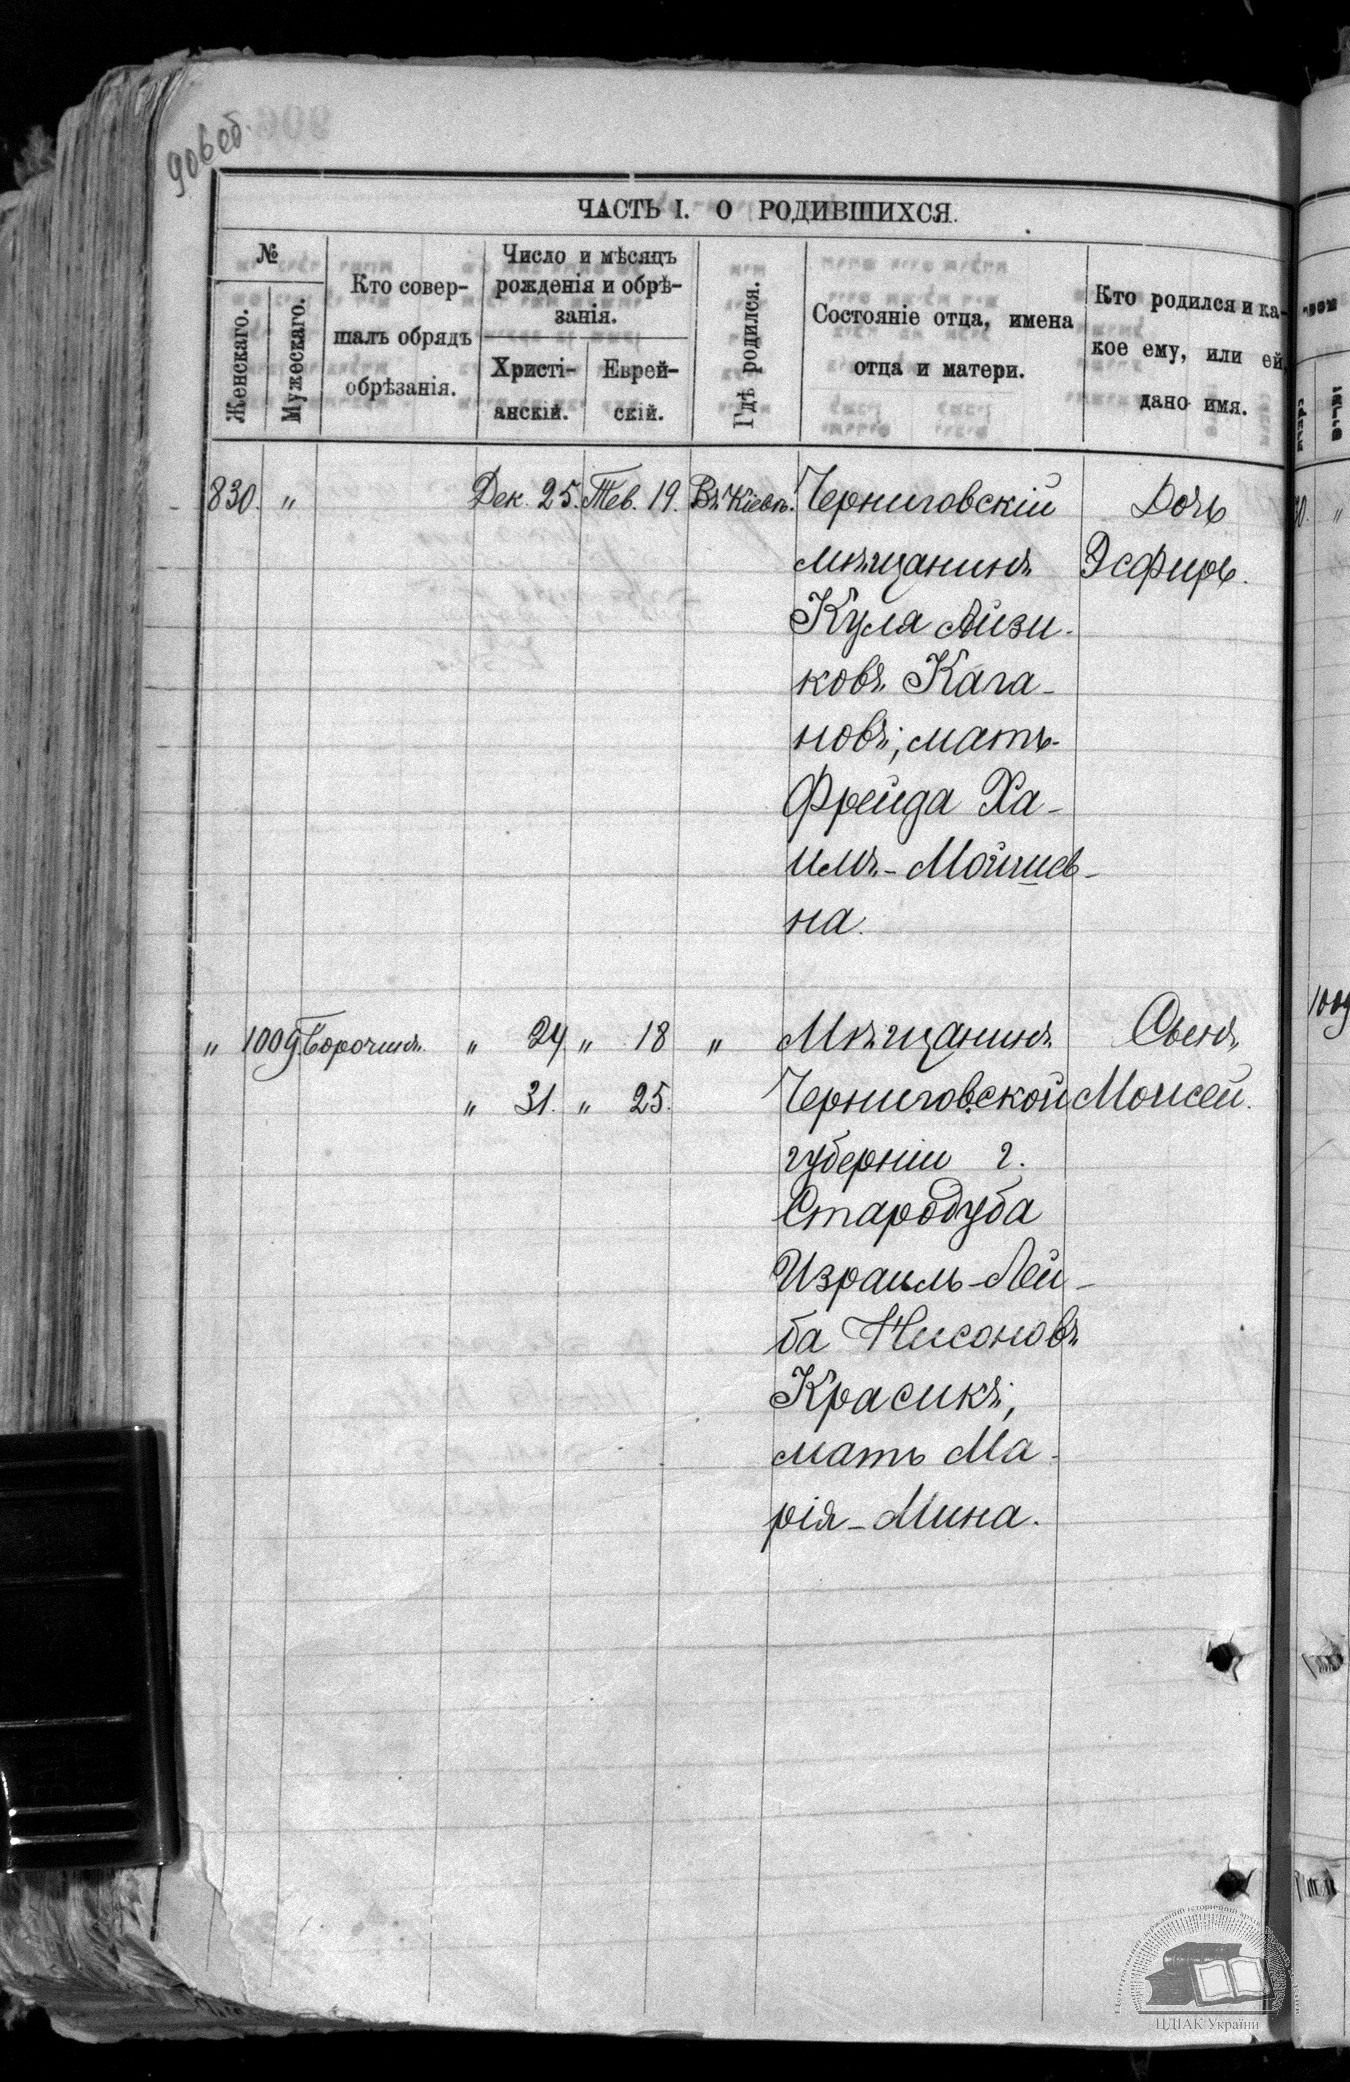 906 об.
ЧАСТЬ I. О РОДИВШИХСЯ.
№
Женскаго.
Мужескаго.
Кто совер-
шалъ обрядъ
обрѣзанія.
Число и мѣсяцъ
рожденія и обрѣ-
занія.
Христі-
анскій.
Еврей-
скій.
Гдѣ родился.
Состояніе отца, имена
отца и матери.
Кто родился и ка-
кое ему, или ей
дано имя.
830. " Дек. 25. Тев. 19. Въ Кіевѣ. Черниговскій Дочь
мѣщанинъ Эсфирь.
Куля Айзи-
ковъ Кага-
новъ; мать
Фрейда Ха-
имъ-Мойшев-
на.
" 1009 Борочинъ. " 24 " 18 " Мѣщанинъ Сынъ
" 31. " 25. Черниговской Моисей.
губерніи г.
Стародуба
Израиль-Лей-
ба Нисоновъ
Красикъ;
мать Ма-
рія-Мина.
1009
ЦДІАК України